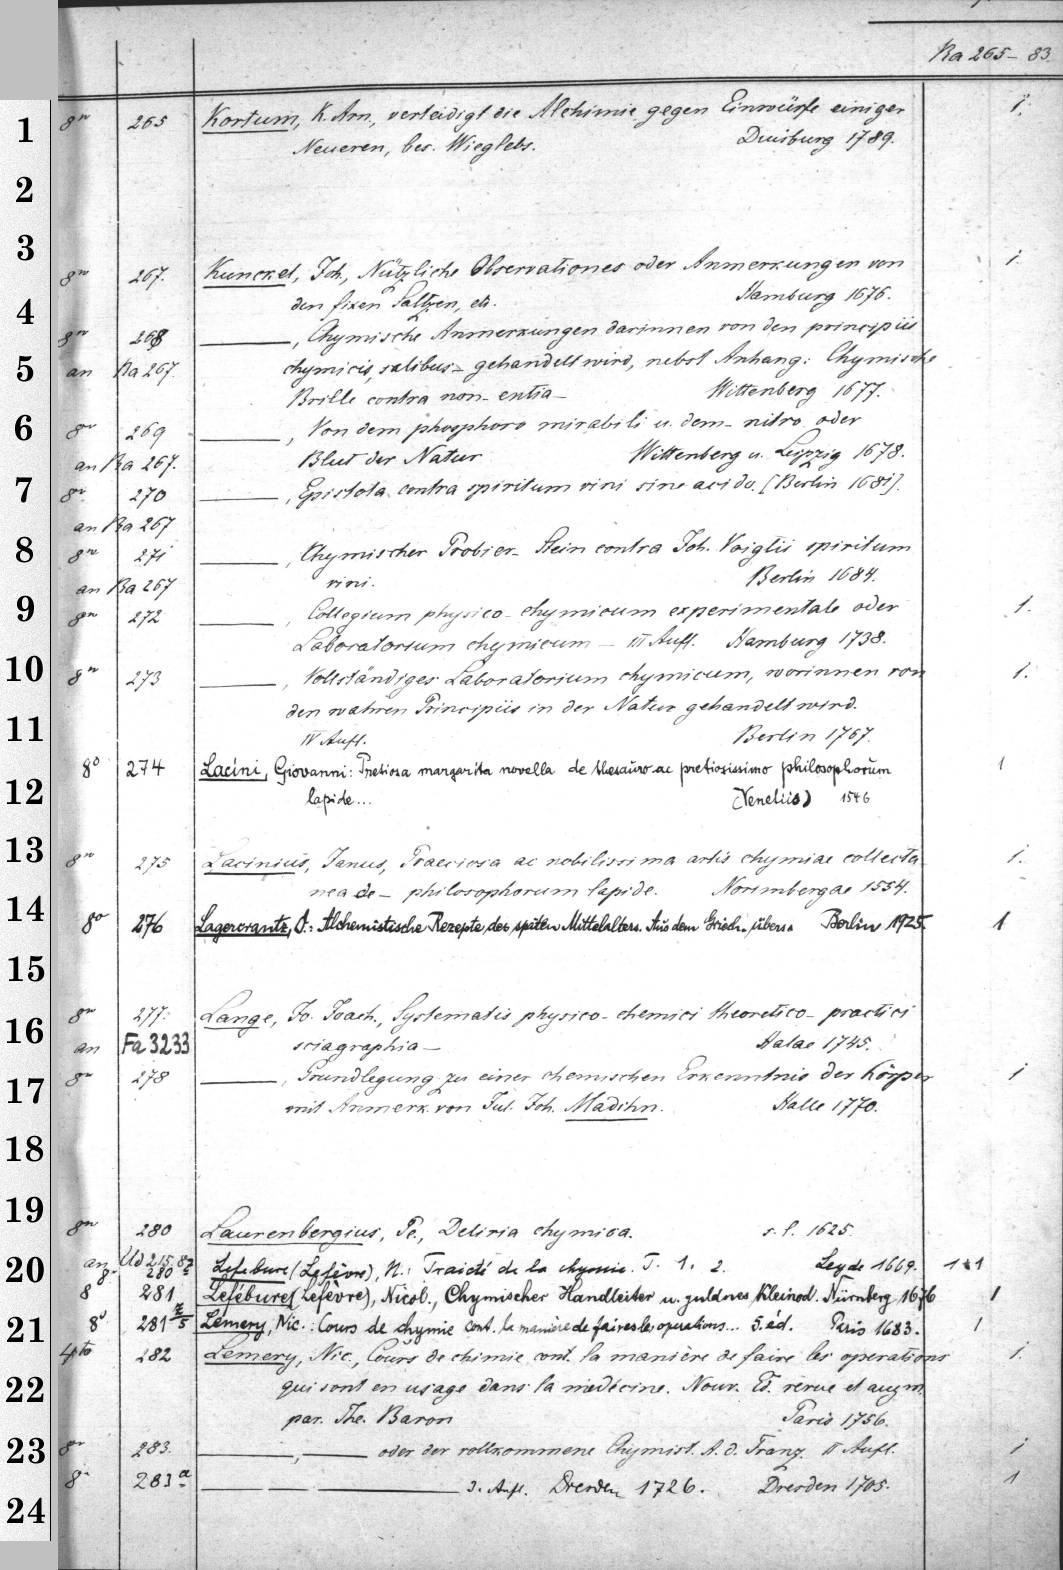 Ra 265-83.
8vo 265 Kortum, K. Arn., verteidigt die Alchimie gegen Einwürfe einiger 1.
Neueren, bes. Wieglebs. Duisburg 1789.
8vo 267. Kunckel, Joh., Nützliche Observationes oder Anmerkungen von 1.
den fixen Saltzen, etc. Hamburg 1676.
8vo 268 ———, Chymische Anmerkungen darinnen von den principiis
an Ra 267. chymicis, salibus – gehandelt wird, nebst Anhang: Chymische
Brille contra non-entia – Wittenberg 1677.
8vo 269 ———, Von dem phosphoro mirabili u. dem – nitro oder
an Ra 267. Blut der Natur Wittenberg u. Leipzig 1678.
8vo 270 ———, Epistola contra spiritum vini sine acido. [Berlin 1681].
an Ra 267
8vo 271 ———, Chymischer Probier-Stein contra Joh. Voigtii spiritum
an Ra 267 vini. Berlin 1684.
8vo 272 ———, Collegium physico-chymicum experimentale oder 1.
Laboratorium chymicum – III Aufl. Hamburg 1738.
8vo 273 ———, Vollständiges Laboratorium chymicum, worinnen von 1.
den wahren Principiis in der Natur gehandelt wird.
IV Aufl. Berlin 1767.
8o 274 Lacini, Giovanni: Pretiosa margarita novella de thesauro ac pretiosissimo philosophorum 1
lapide... (Veneliis) 1546
8vo 275 Lacinius, Janus, Praeciosa ac nobilissima artis chymiae collecta- 1.
nea de – philosophorum lapide. Norimbergae 1554.
8o 276 Lagercrantz, O.: Alchemistische Rezepte des späten Mittelalters. Aus dem Griech. übers. Berlin 1925. 1
8vo 277. Lange, Jo. Joach., Systematis physico-chemici theoretico-practici
an Fa 3233 sciagraphia – Halae 1745.
8vo 278 ———, Grundlegung zu einer chemischen Erkenntnis der Körper 1
mit Anmerk. von Jul. Joh. Madihn. Halle 1770.
8vo 280 Laurenbergius, Pe., Deliria chymica. s. l. 1625.
an Ud 215, 8o
8o 280 a Lefebure (Lefèvre), N.: Traicté de la chymie. T. 1. 2. Leyde 1669. 1+1
8 281 Lefébure (Lefèvre), Nicol., Chymischer Handleiter u. guldnes Kleinod. Nürnberg 1676 1
8o 281 z/5 Lémery, Nic.: Cours de chymie cont. la manière de faire les operations... 5. éd. Paris 1683. 1
4to 282 Lémery, Nic., Cours de chimie cont. la manière de faire les operations 1.
qui sont en usage dans la medécine. Nouv. Ed. revue et augm.
par. The. Baron Paris 1756.
8vo 283. ———, ——— oder der vollkommene Chymist. A. d. Franz. II Aufl. 1
8o 283 a ——— — ——— 3. Aufl. Dresden 1726. Dresden 1705. 1
1
2
3
4
5
6
7
8
9
10
11
12
13
14
15
16
17
18
19
20
21
22
23
24